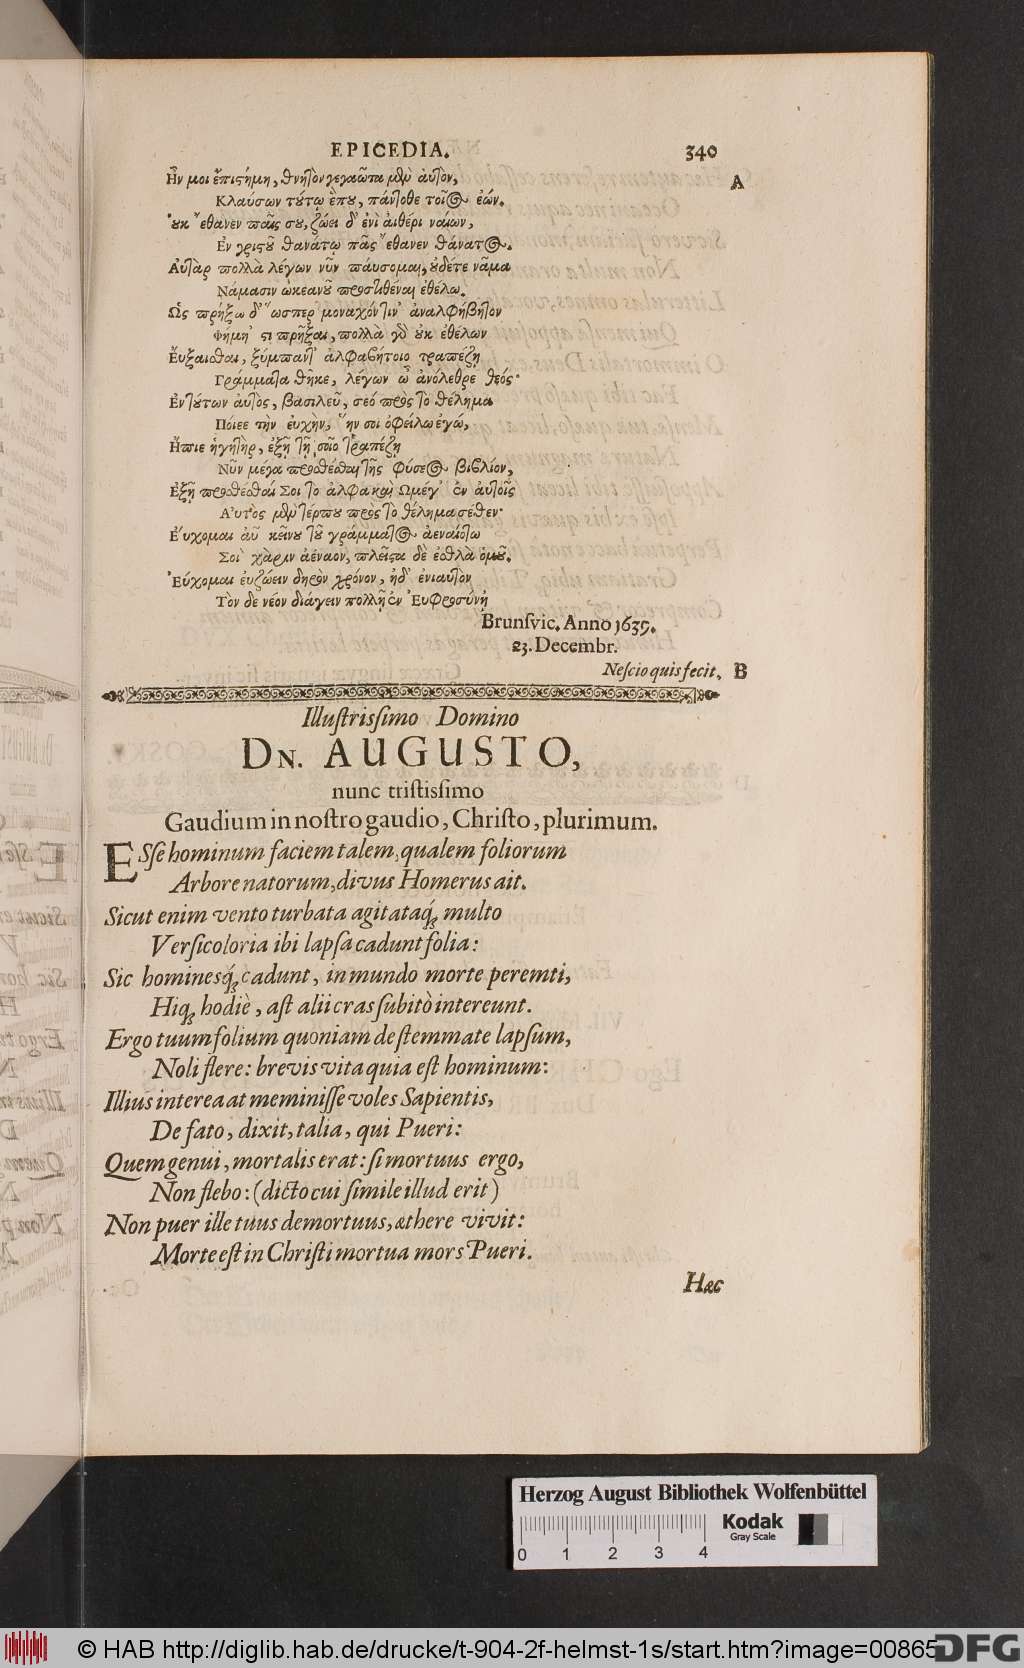 EPICEDIA. 340
Ἦν μοι ἐπιστήμη, θνητὸν γεγαῶτα μὲν αὐτὸν, A
Κλαύσων τούτῳ ἔπου, πάντοθε τοῖος ἐών.
Οὐκ ἔθανεν παῖς σου, ζώει δ' ἐνὶ αἰθέρι ναίων,
Ἐν χριστοῦ θανάτῳ πᾶς ἔθανεν θάνατος.
Αὐτὰρ πολλὰ λέγων νῦν παύσομαι, οὐδέτε νᾶμα
Νάμασιν ὠκεανοῦ προστιθέναι ἐθέλω.
Ὣς πρήξω δ' ὥσπερ μοναχόν τιν' ἀναλφήβητον
Φήμη' στι πρῆξαι, πολλὰ γὸ οὐκ ἐθέλων
Εὔξασθαι, ξύμπαντ' ἀλφαβήτοιο τραπέζῃ
Γράμματα θῆκε, λέγων ὦ ἀνόλεθρε θεός·
Ἐν τούτων αὐτὸς, βασιλεῦ, σεό πρὸς τὸ θέλημα
Πόιεε τὴν εὐχὴν, ἥν σοι ὀφείλω ἐγώ,
Ἤπιε ἡγητὴρ, ἐξῇ τῇ σοῖο τραπέζῃ
Νῦν μέγα προθέσθαι τῆς φύσεος βιβλίον,
Ἐξῇ προθέσθαί Σοι τὸ ἀλφα καὶ Ωμέγ' ἐν αὐτοῖς
Αυτος μὲν τέρπου πρὸς τὸ θέλημα σέθεν·
Εὔχομαι αὖ κείνου τοῦ γράμματος ἀεναίοτω
Σοὶ χάριν ἀέναον, πλεῖστα δὲ ἐσθλὰ ὁμοῦ.
Εὔχομαι εὐζώειν δηρὸν χρόνον, ἠδ' ἐνιαυτὸν
Τὸν δε νέον διάγειν πολλῇ ἐν Εὐφροσύνῃ
Brunsvic. Anno 1635.
23. Decembr.
Nescio quis fecit. B
Illustrissimo Domino
DN. AUGUSTO,
nunc tristissimo
Gaudium in nostro gaudio, Christo, plurimum.
ESse hominum faciem talem, qualem foliorum
Arbore natorum, divus Homerus ait.
Sicut enim vento turbata agitataq́; multo
Versicoloria ibi lapsa cadunt folia:
Sic hominesq́; cadunt, in mundo morte peremti,
Hiq; hodiè, ast alii cras subitò intereunt.
Ergo tuum folium quoniam de stemmate lapsum,
Noli flere: brevis vita quia est hominum:
Illius interea at meminisse voles Sapientis,
De fato, dixit, talia, qui Pueri:
Quem genui, mortalis erat: si mortuus ergo,
Non flebo: (dicto cui simile illud erit)
Non puer ille tuus demortuus, æthere vivit:
Morte est in Christi mortua mors Pueri.
Hæc
Herzog August Bibliothek Wolfenbüttel
Kodak
Gray Scale
0 1 2 3 4
© HAB http://diglib.hab.de/drucke/t-904-2f-helmst-1s/start.htm?image=00865
DFG